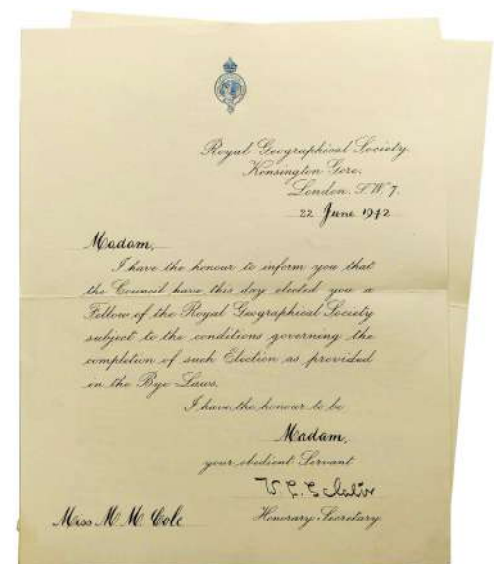 Royal Geographical Society.
Kensington Gore.
London. S.W.7.
22 June 1942
Madam,
I have the honour to inform you that
the Council have this day elected you a
Fellow of the Royal Geographical Society
subject to the conditions governing the
completion of such Election as provided
in the Bye-Laws.
I have the honour to be
Madam,
your obedient Servant
Honorary Secretary.
Miss M. M. Cole